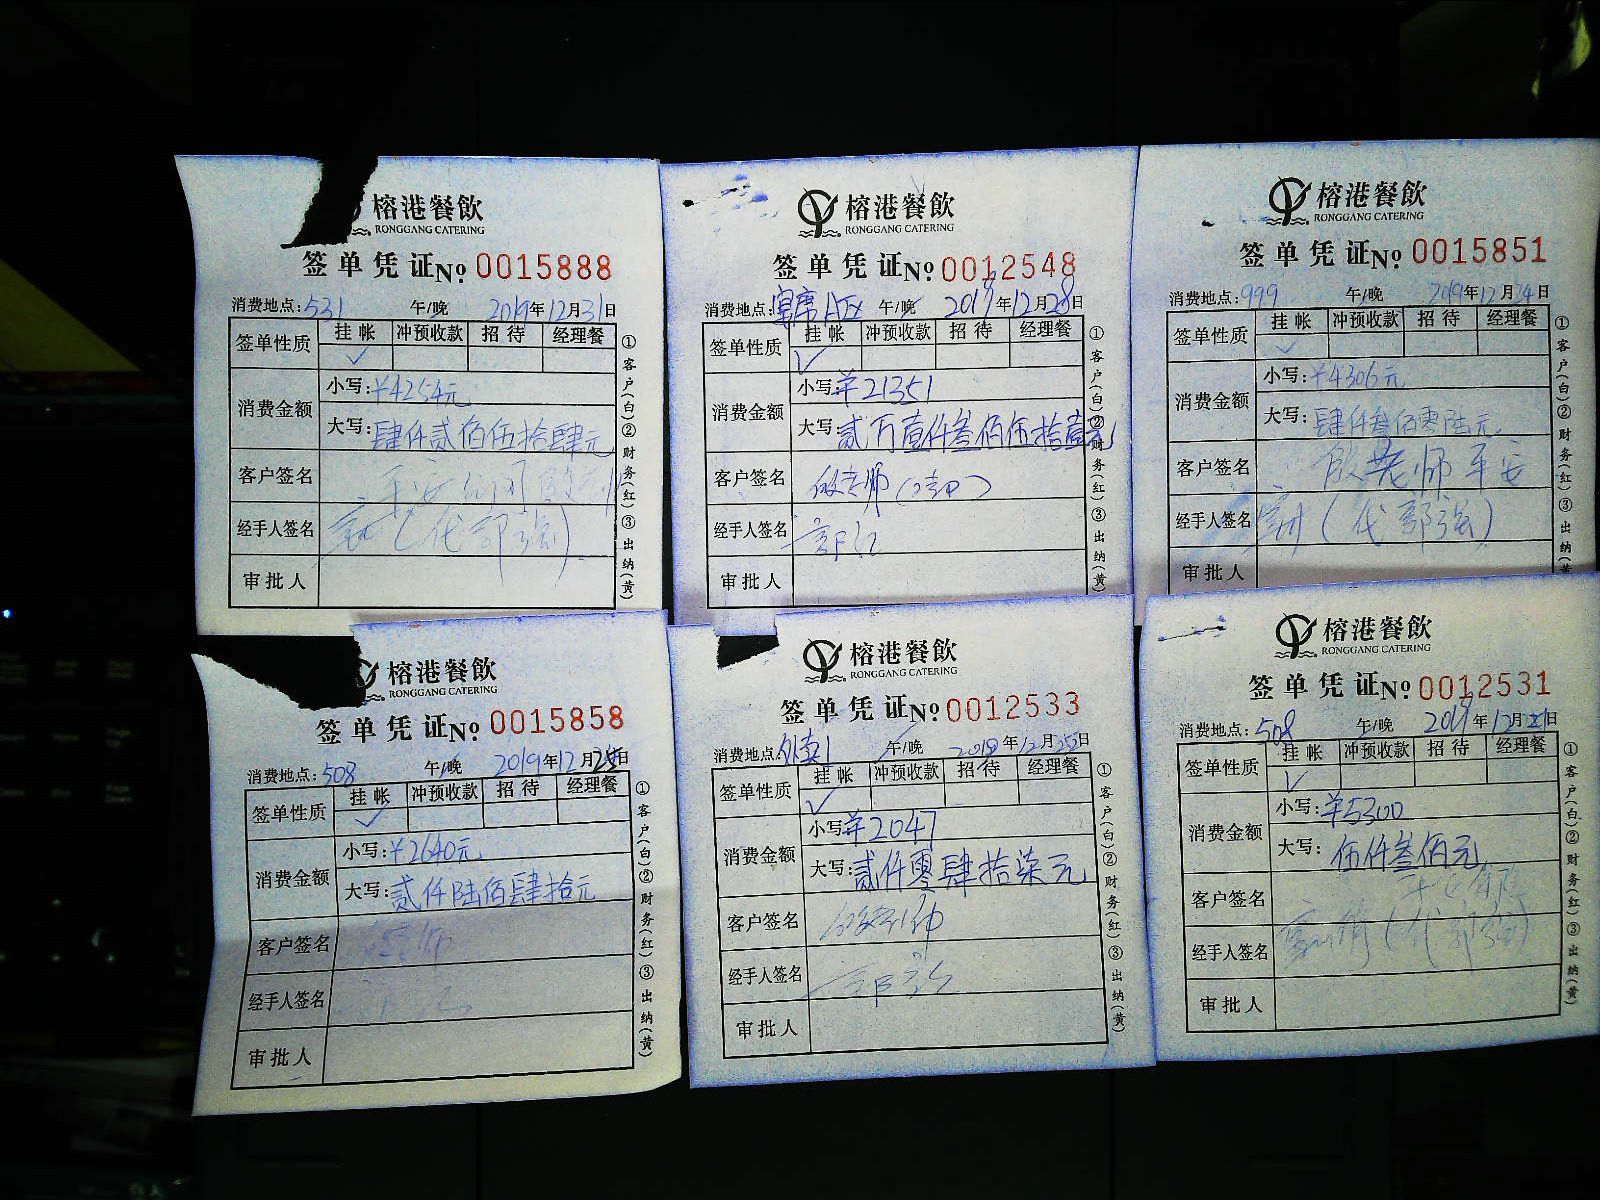 榕港餐飲
RONGGANG CATERING
签单凭证№ 0015888
消费地点:531 午/晚 2019年12月31日
签单性质 挂帐 冲预收款 招待 经理餐
✓
消费金额 小写:¥4254元
大写:肆仟贰佰伍拾肆元
客户签名
经手人签名 (代郭强)
审批人
①客户(白)②财务(红)③出纳(黄)
榕港餐飲
RONGGANG CATERING
签单凭证№ 0012548
消费地点:宴席A区 午/晚 2019年12月28日
签单性质 挂帐 冲预收款 招待 经理餐
✓
消费金额 小写:¥21351
大写:贰万壹仟叁佰伍拾壹元
客户签名 殷老师
经手人签名
审批人
①客户(白)②财务(红)③出纳(黄)
榕港餐飲
RONGGANG CATERING
签单凭证№ 0015851
消费地点:999 午/晚 2019年12月24日
签单性质 挂帐 冲预收款 招待 经理餐
✓
消费金额 小写:¥4306元
大写:肆仟叁佰零陆元
客户签名 殷老师平安
经手人签名 (代郭强)
审批人
①客户(白)②财务(红)③出纳(黄)
榕港餐飲
RONGGANG CATERING
签单凭证№ 0015858
消费地点:508 午/晚 2019年12月25日
签单性质 挂帐 冲预收款 招待 经理餐
✓
消费金额 小写:¥2640元
大写:贰仟陆佰肆拾元
客户签名
经手人签名
审批人
①客户(白)②财务(红)③出纳(黄)
榕港餐飲
RONGGANG CATERING
签单凭证№ 0012533
消费地点:外卖1 午/晚 2019年12月25日
签单性质 挂帐 冲预收款 招待 经理餐
✓
消费金额 小写:¥2047
大写:贰仟零肆拾柒元
客户签名
经手人签名
审批人
①客户(白)②财务(红)③出纳(黄)
榕港餐飲
RONGGANG CATERING
签单凭证№ 0012531
消费地点:508 午/晚 2019年12月21日
签单性质 挂帐 冲预收款 招待 经理餐
✓
消费金额 小写:¥5300
大写:伍仟叁佰元
客户签名
经手人签名 (代郭强)
审批人
①客户(白)②财务(红)③出纳(黄)